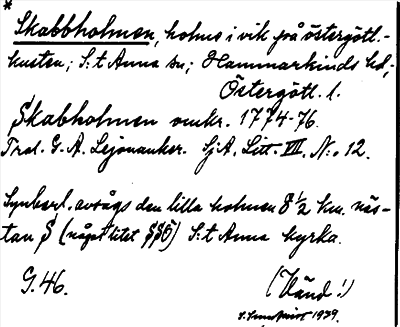 *
Skabbholmen, holme i vik på östergötl.-
kusten; S:t Anna sn; Hammarkinds hd;
Östergötl. l.
Skabholmen omkr. 1774-76.
Trol. G. A. Lejonanker. SjA, Litt. VII, N:o 12.
Synberl. avsågs den lilla holmen 8½ km. näs-
tan S (något litet SSÖ) S:t Anna kyrka.
G. 46.
(Vänd!)
1939.